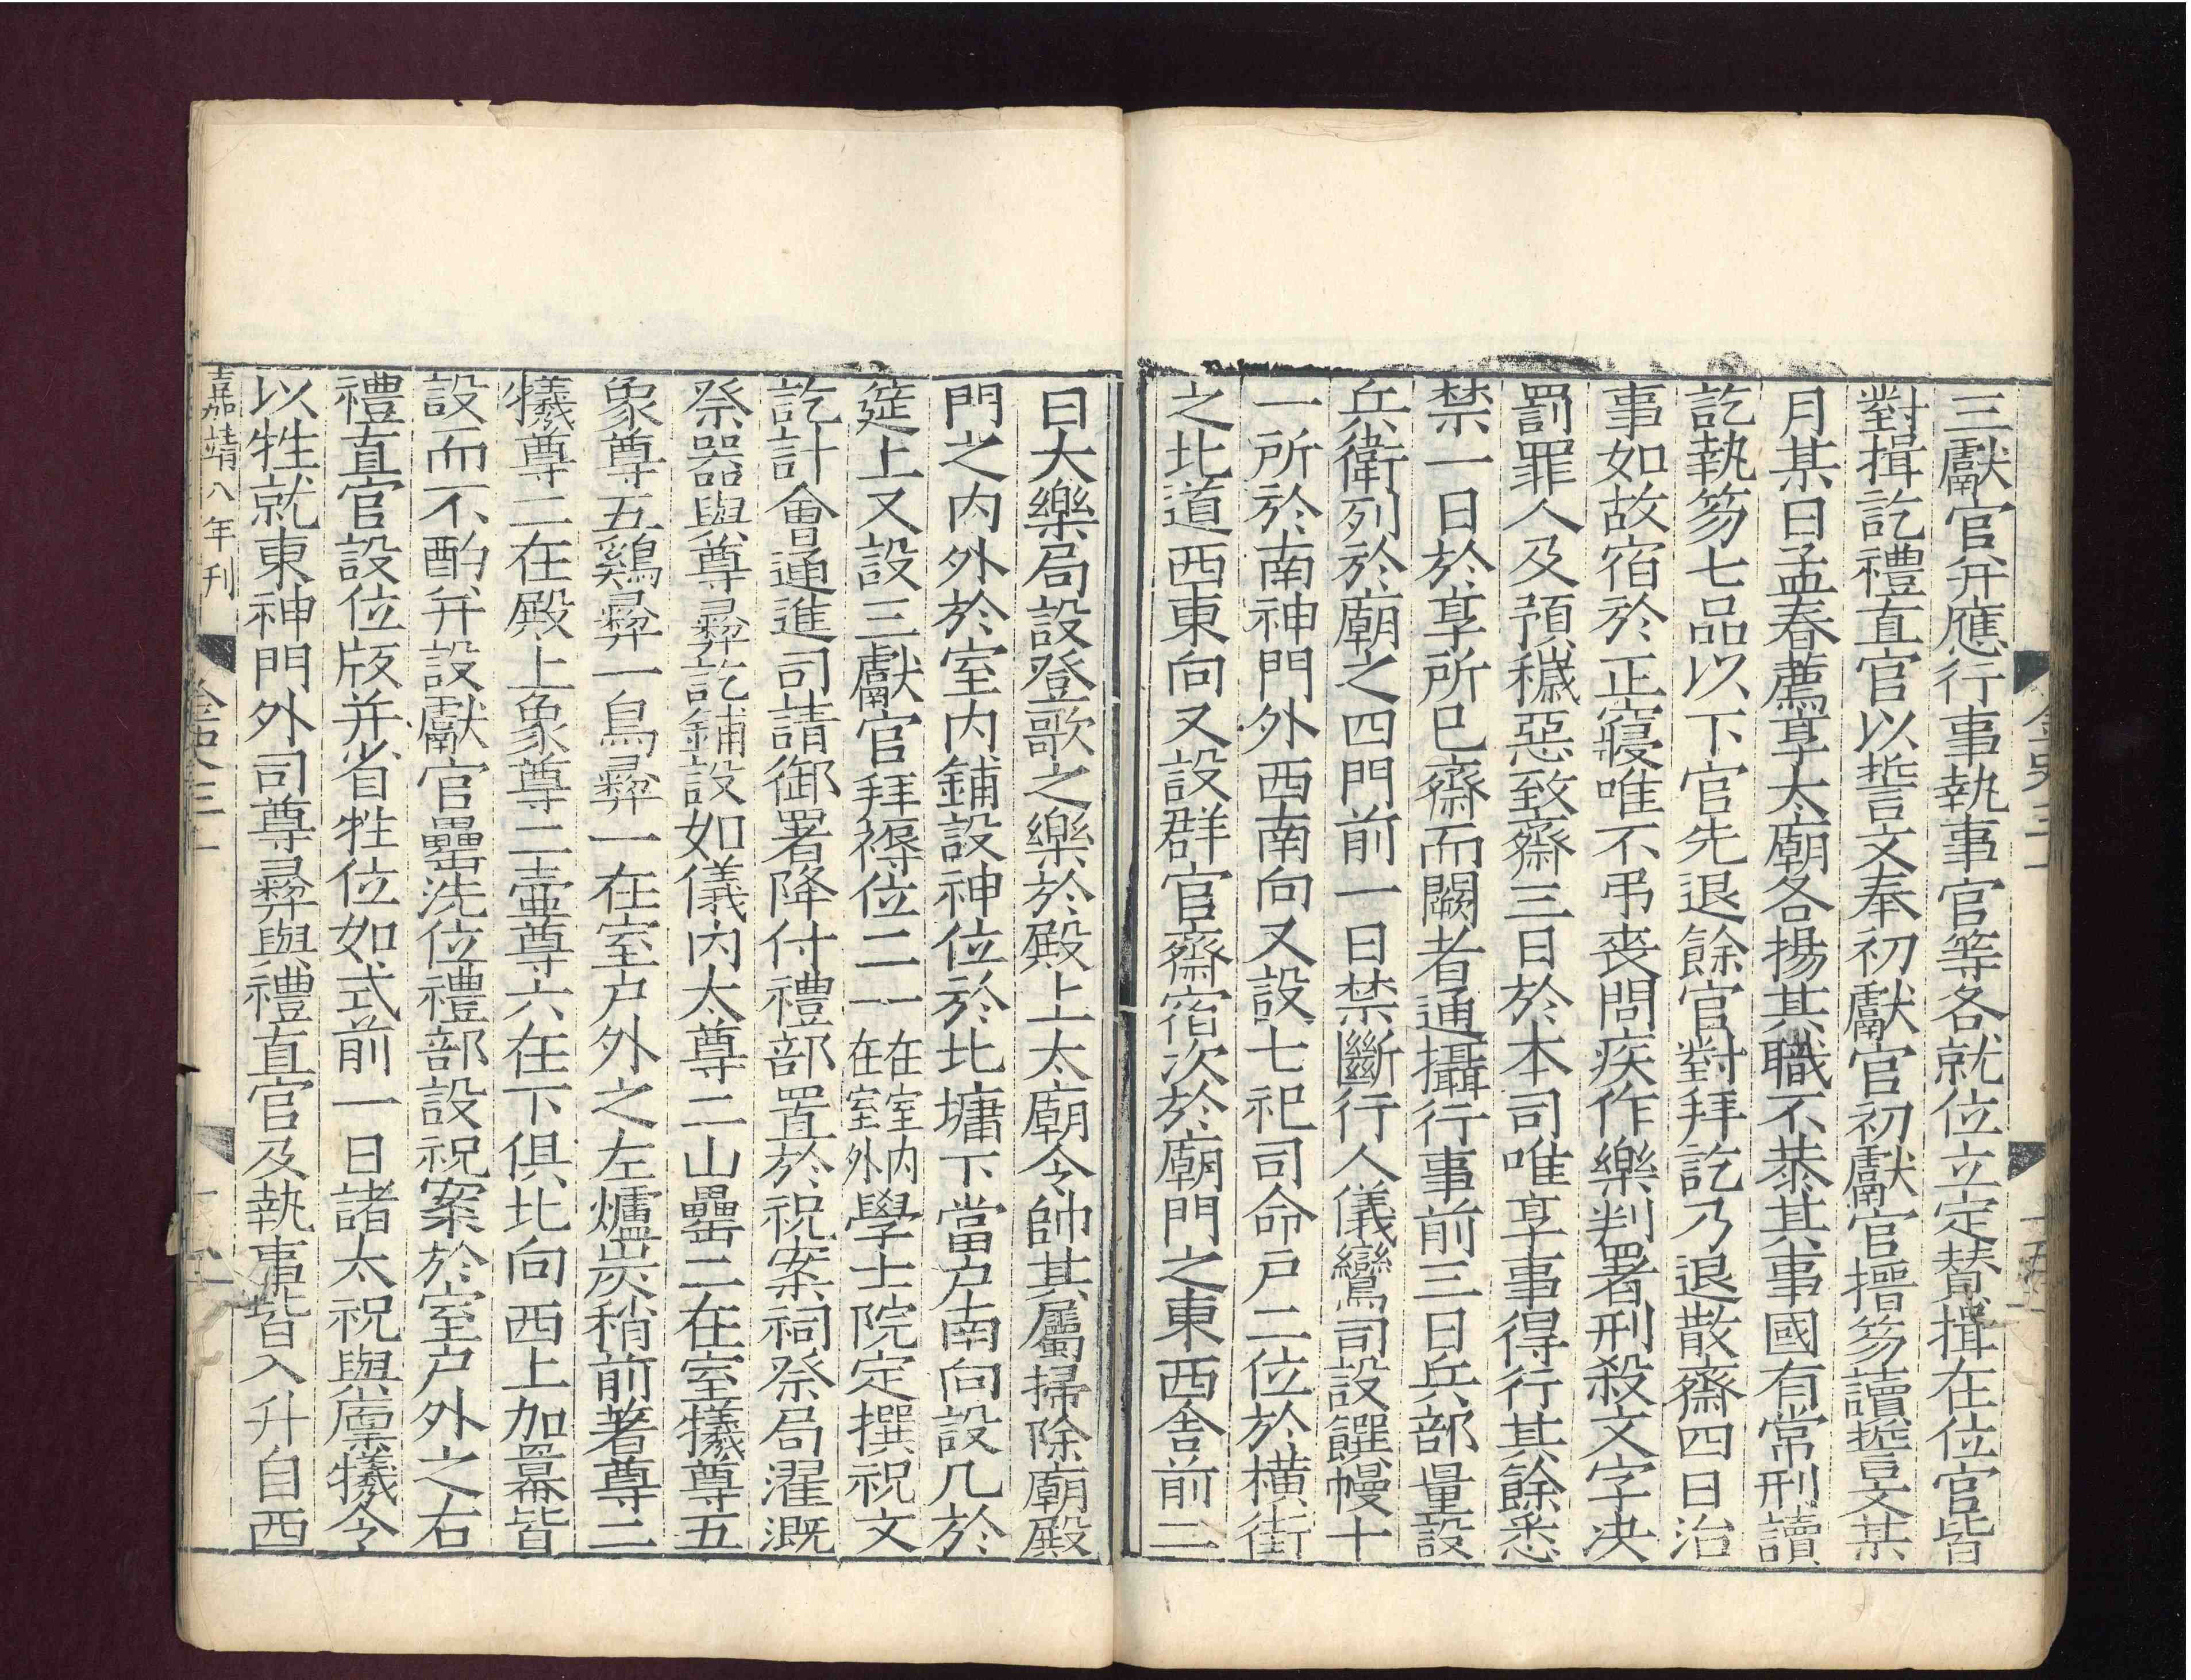 三獻官并應行事執事官等各就位立定贊揖在位官皆
對揖訖禮直官以誓文奉初獻官初獻官搢笏讀誓文某
月某日孟春薦享太廟各揚其職不恭其事國有常刑讀
訖執笏七品以下官先退餘官對拜訖乃退散齋四日治
事如故宿於正寢唯不弔喪問疾作樂判署刑殺文字决
罰罪人及預穢惡致齋三日於本司唯享事得行其餘悉
禁一日於享所已齋而闕者通攝行事前三日兵部量設
兵衛列於廟之四門前一日禁斷行人儀鸞司設饌幔十
一所於南神門外西南向又設七祀司命戶二位於横街
之北道西東向又設群官齋宿次於廟門之東西舍前二
日大樂局設登歌之樂於殿上太廟令帥其屬掃除廟殿
門之内外於室内鋪設神位於北墉下當戶南向設几於
筵上又設三獻官拜褥位二一在室内一在室外學士院定撰祝文
訖計會通進司請御署降付禮部置於祝案祠祭局濯溉
祭器與尊彞訖鋪設如儀内太尊二山罍二在室犠尊五
象尊五鷄彞一鳥彞一在室戶外之左爐炭稍前著尊二
犠尊二在殿上象尊二壺尊六在下俱北向西上加羃皆
設而不酌并設獻官罍洗位禮部設祝案於室戶外之右
禮直官設位版并省牲位如式前一日諸太祝與廩犠令
以牲就東神門外司尊彞與禮直官及執事皆入升自西
嘉靖八年刊
金史三十一